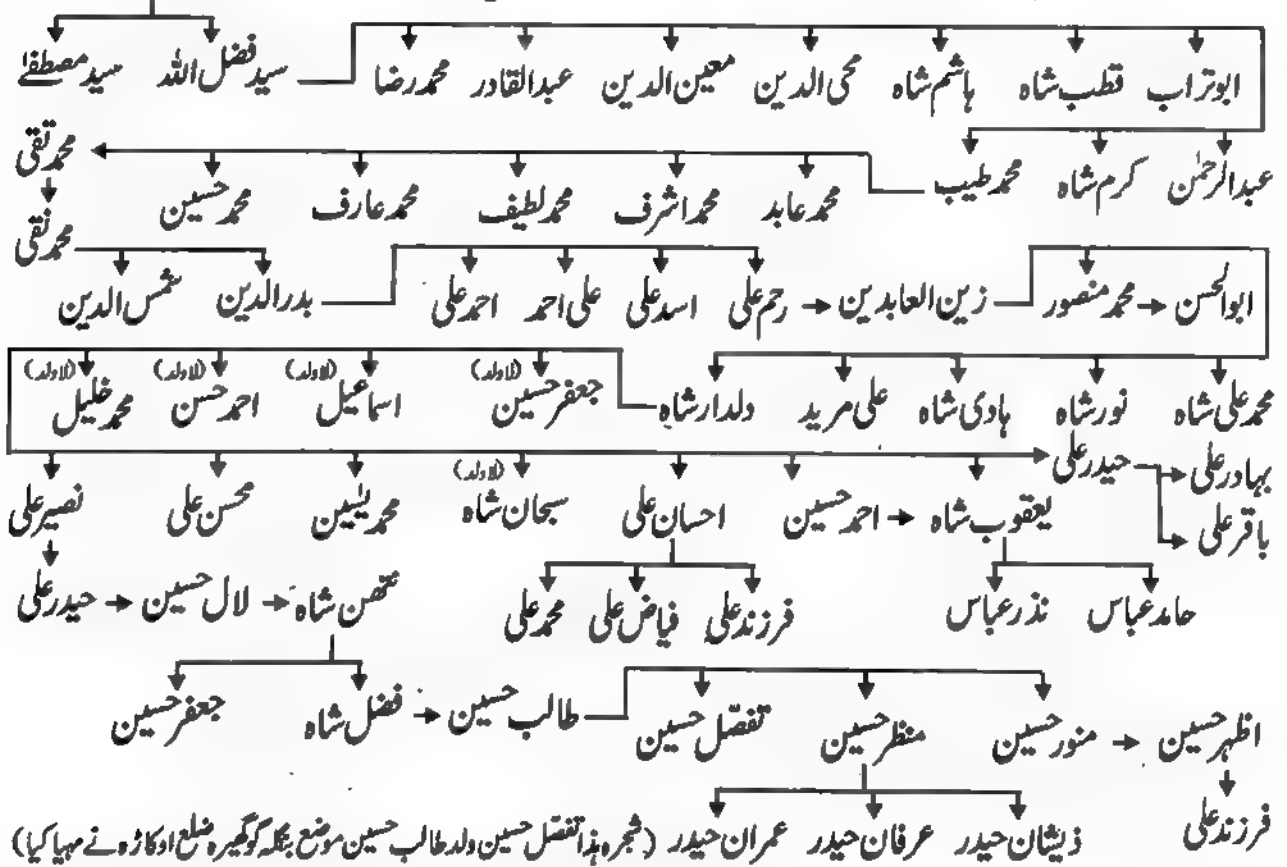 ابوتراب قطب شاہ ہاشم شاہ محی الدین معین الدین عبدالقادر محمد رضا سید فضل اللہ سید مصطفےٰ
عبدالرحمٰن کرم شاہ محمد طیب محمد عابد محمد اشرف محمد لطیف محمد عارف محمد حسین محمد تقی
محمد نقی
ابوالحسن محمد منصور زین العابدین رحم علی اسد علی علی احمد احمد علی بدرالدین شمس الدین
(لاولد) (لاولد) (لاولد) (لاولد)
محمد علی شاہ نور شاہ ہادی شاہ علی مرید دلدار شاہ جعفر حسین اسماعیل احمد حسن محمد خلیل
بہادر علی حیدر علی
(لاولد)
باقر علی یعقوب شاہ احمد حسین احسان علی سبحان شاہ محمد یٰسین محسن علی نصیر علی
حامد عباس نذر عباس فرزند علی فیاض علی محمد علی مٹھن شاہ لال حسین حیدر علی
اظہر حسین منور حسین منظر حسین تفصّل حسین طالب حسین فضل شاہ جعفر حسین
فرزند علی ذیشان حیدر عرفان حیدر عمران حیدر (شجرہ ہذا تفصّل حسین ولد طالب حسین موضع بنگلہ گوگھیرہ ضلع اوکاڑہ نے مہیا کیا)